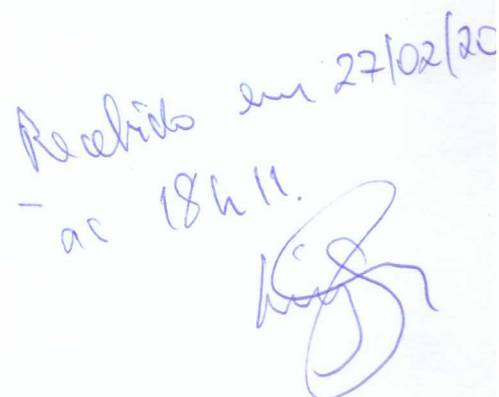 Recebido em 27/02/20
- as 18h11.